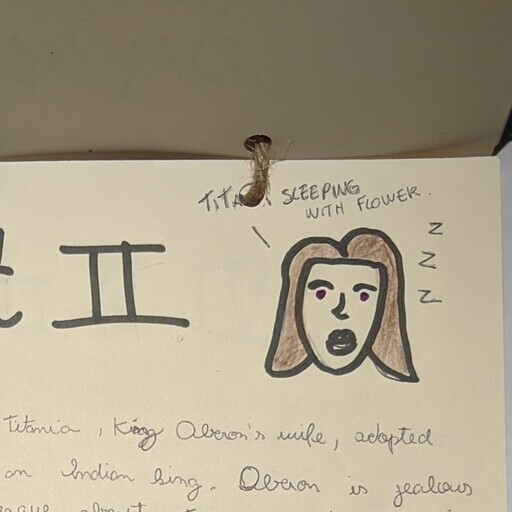 TITA SLEEPING
WITH FLOWER.
t II
Z
Z
Z
Titania, King Oberon's wife, adopted
an Indian king. Oberon is jealous
about